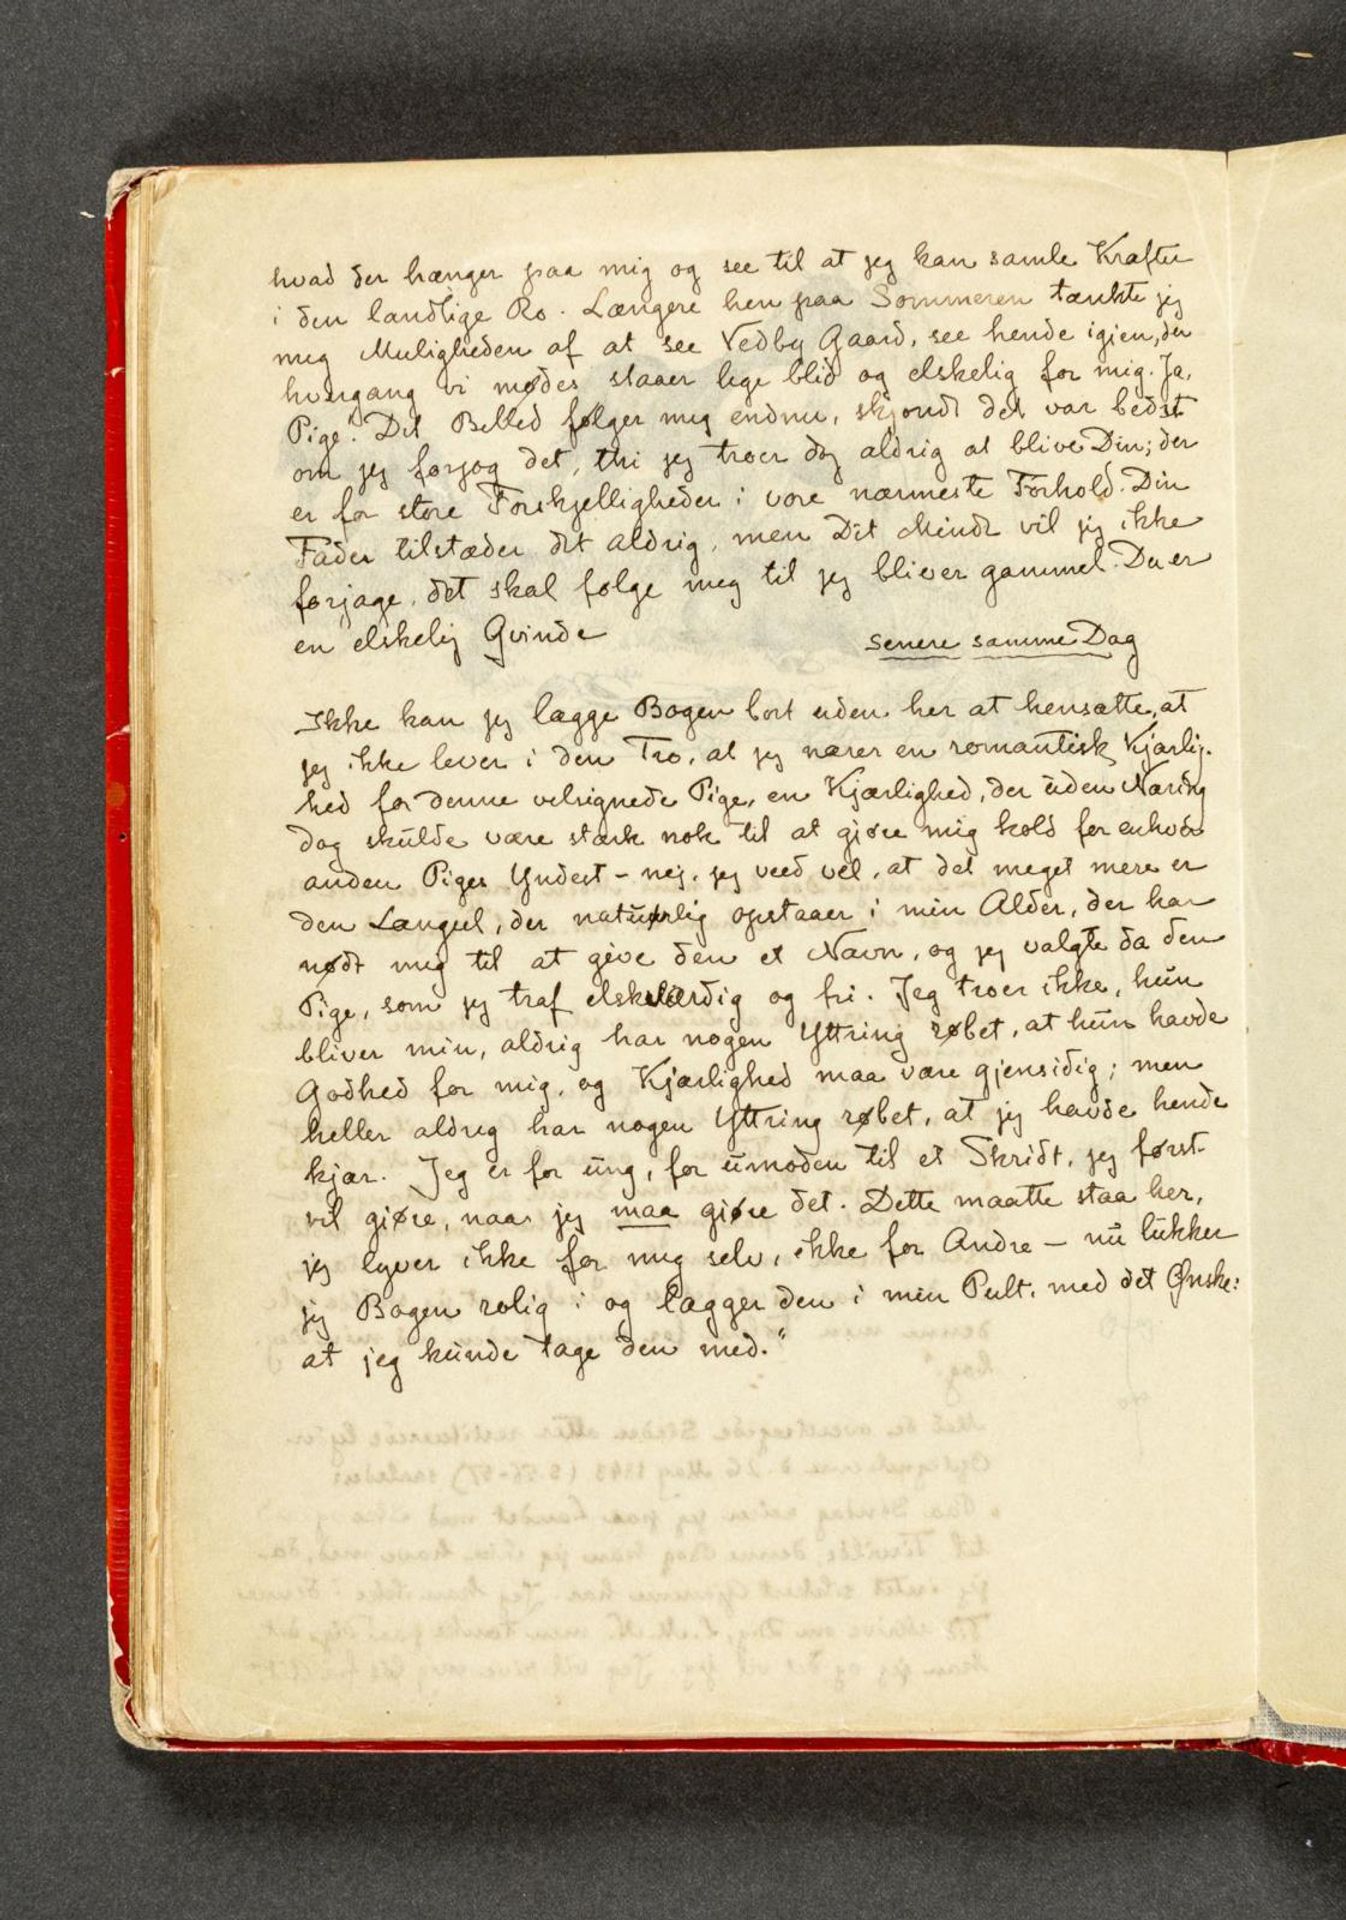 hvad der hænger paa mig og see til at jeg kan samle Kræfter
i den landlige Ro. Længere hen paa Sommeren tænkte jeg
mig Muligheden af at see Vedby Gaard, see hende igien, der
hvergang vi mødes staaer lige blid og elskelig for mig. Ja,
Pige! Dit Billed følger mig endnu, skjøndt det var bedst
om jeg forjog det, thi jeg troer dog aldrig at blive Din; der
er for store Forskjelligheder i vore nærmeste Forhold. Din
Fader tilstæder det aldrig, men Dit Minde vil jeg ikke
forjage, det skal følge mig til jeg bliver gammel. Du er
en elskelig Qvinde
senere samme Dag
Ikke kan jeg lægge Bogen bort uden her at hensætte, at
jeg ikke lever i den Tro, at jeg nærer en romantisk Kjærlig-
hed for denne velsignede Pige, en Kjærlighed, der uden Næring
dog skulde være stærk nok til at gjøre mig kold for enhver
anden Piges Yndest - nej, jeg veed vel, at det meget mere er
den Længsel, der naturlig opstaaer i min Alder, der har
nødt mig til at give den et Navn, og jeg valgte da den
Pige, som jeg traf elskværdig og fri. Jeg troer ikke, hun
bliver min, aldrig har nogen Yttring røbet, at hun havde
Godhed for mig, og Kjærlighed maa være gjensidig; men
heller aldrig har nogen Yttring røbet, at jeg havde hende
kjær. Jeg er for ung, for umoden til et Skridt, jeg først
vil giøre, naar jeg maa giøre det. Dette maatte staa her,
jeg lyver ikke for mig selv, ikke for Andre - nu lukker
jeg Bogen rolig i og lægger den i min Pult, med det Ønske:
at jeg kunde tage den med."